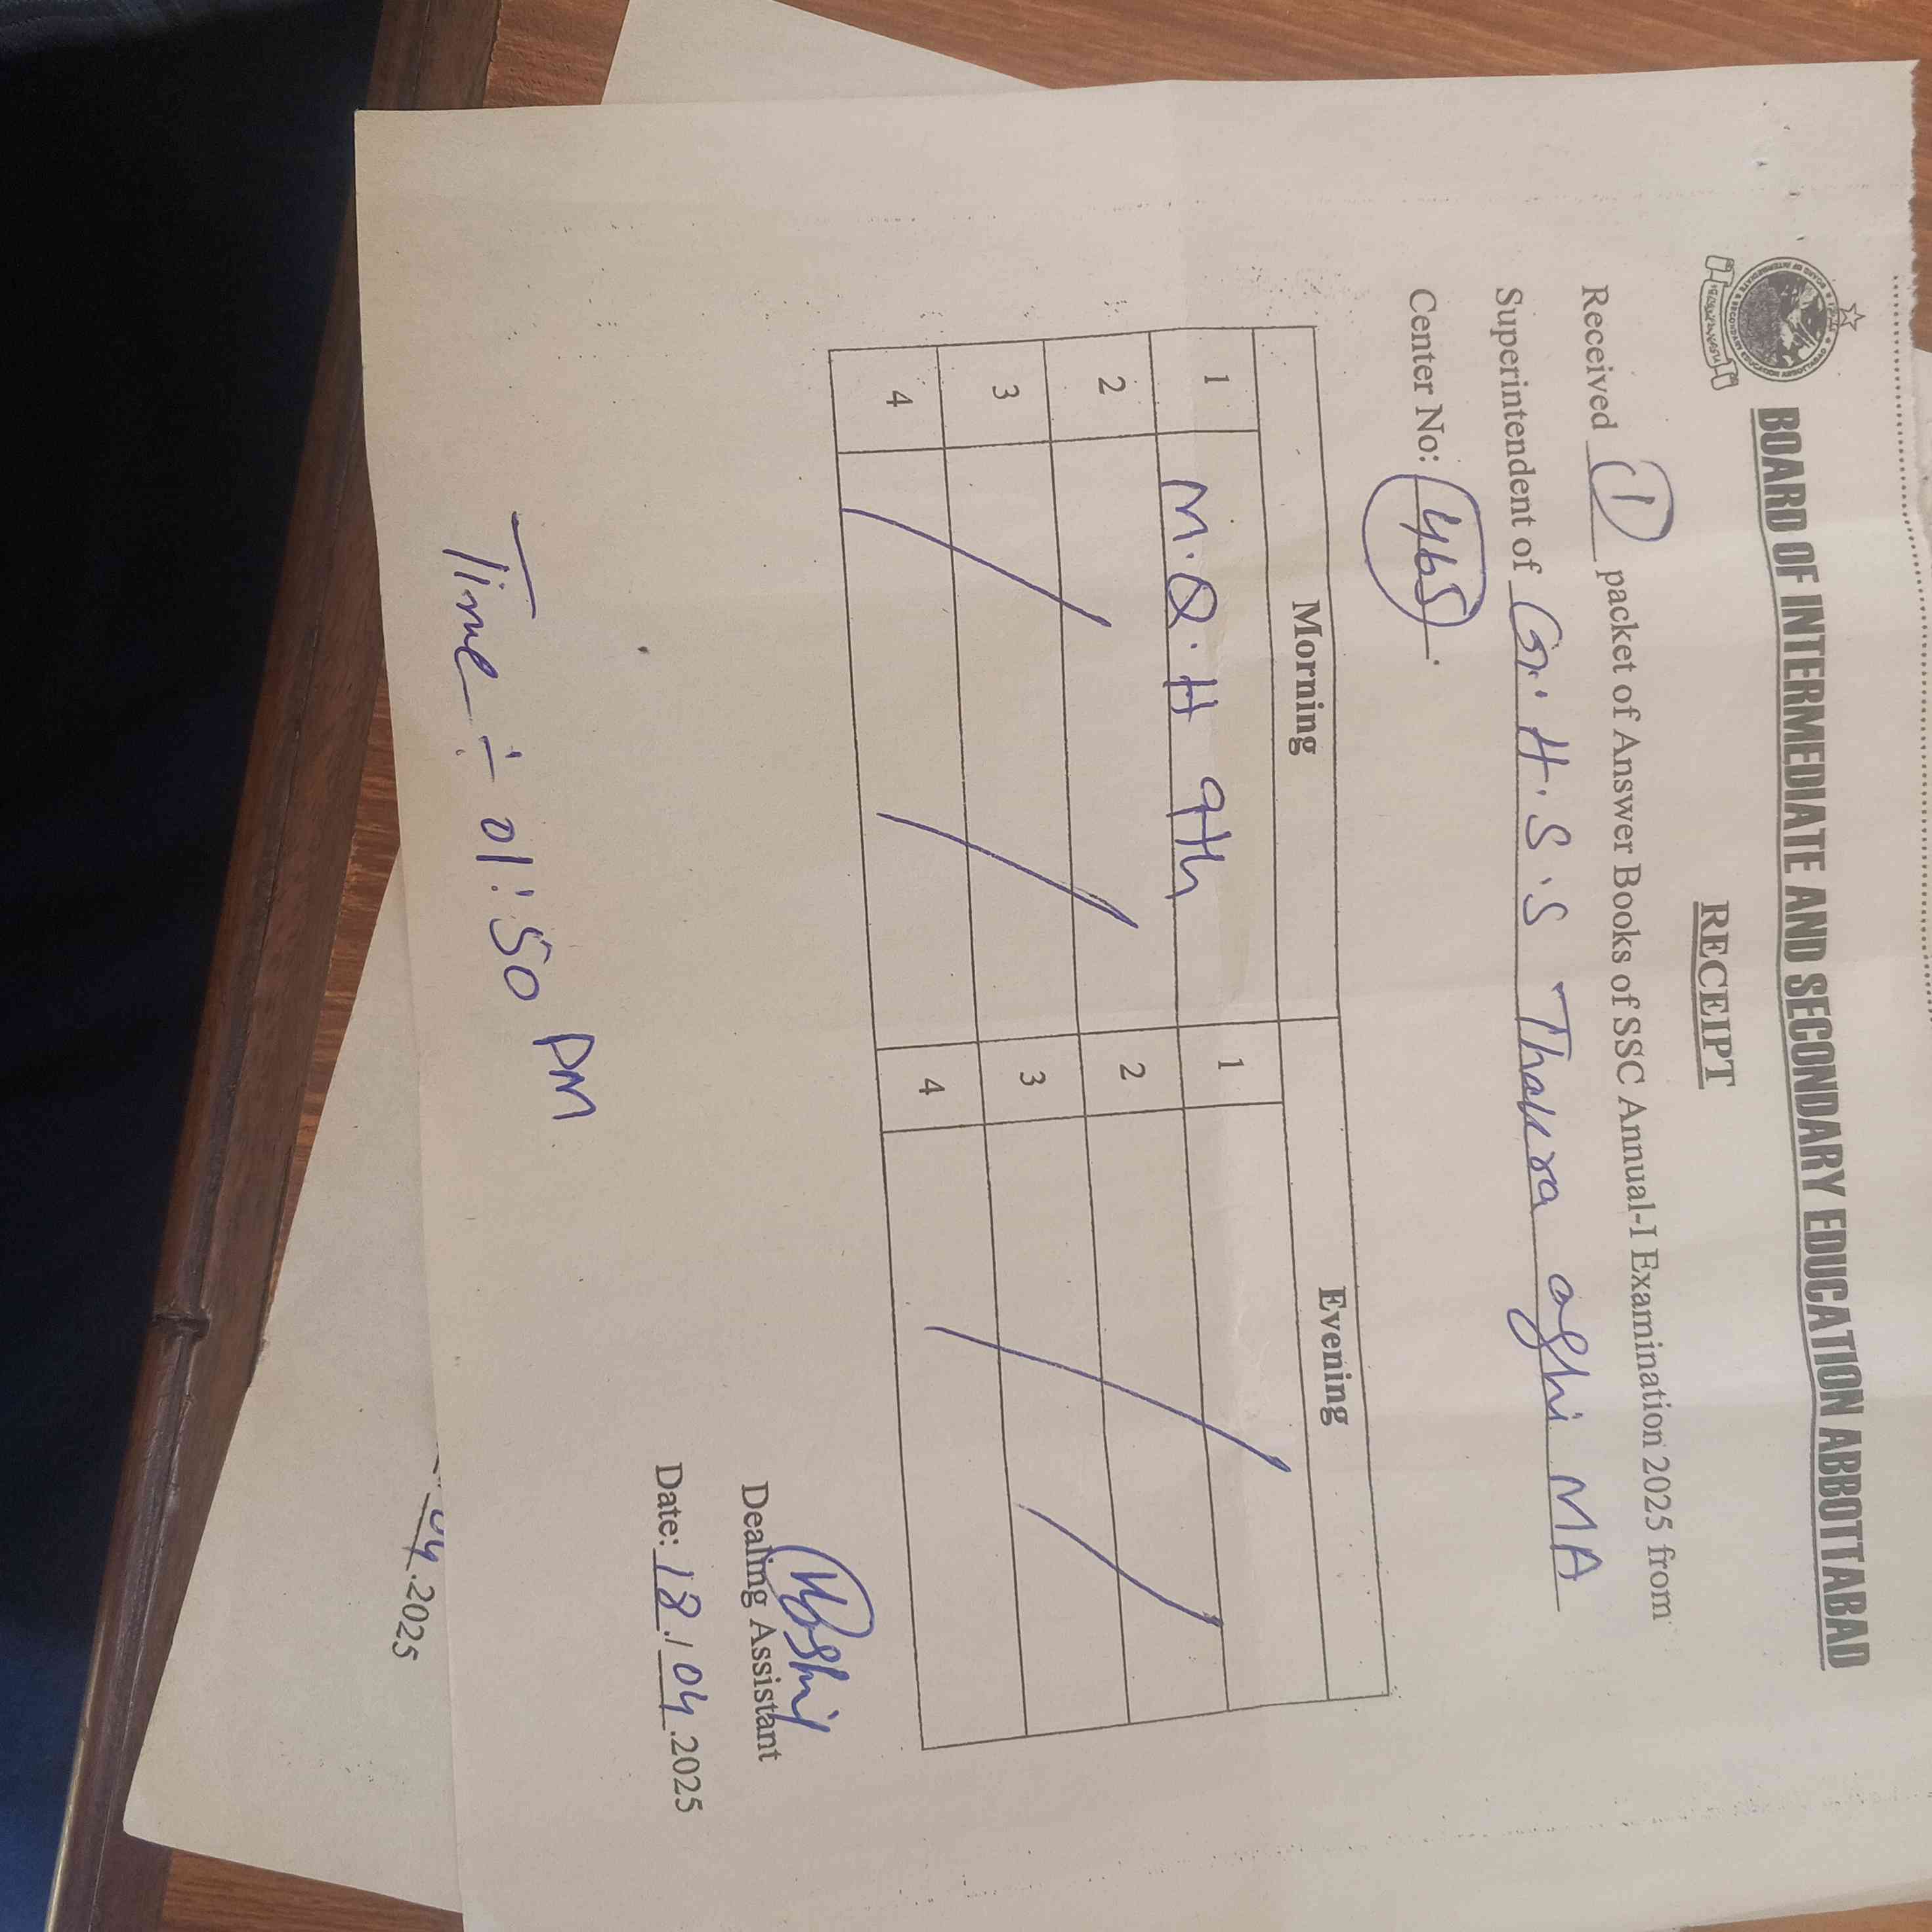 BOARD OF INTERMEDIATE AND SECONDARY EDUCATION ABBOTTABAD
RECEIPT
Received (1) packet of Answer Books of SSC Annual-I Examination 2025 from
Superintendent of G.H.S.S Thakra ashi MA
Center No: 465.
Morning Evening
1 M.Q.H 9th 1
2 2
3 3
4 4
Dealing Assistant
Date: 18/04.2025
Time ÷ 01:50 PM
04.2025